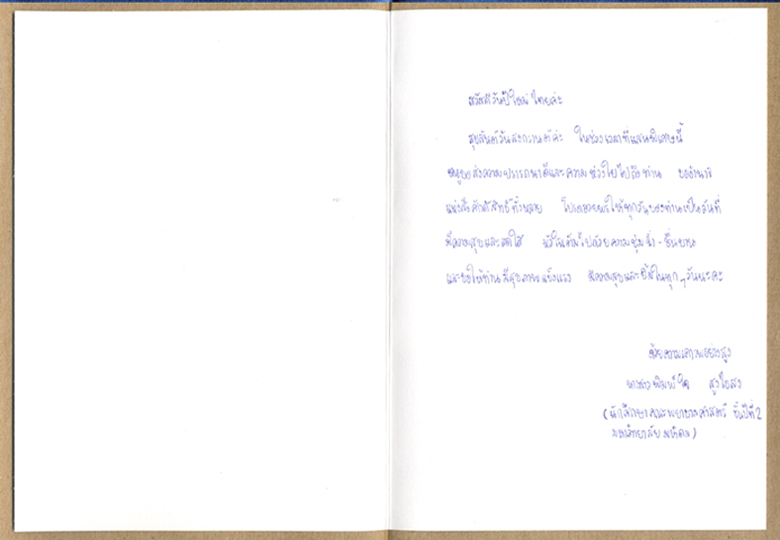 สวัสดีวันปีใหม่ไทยค่ะ
สุขสันต์วันสงกรานต์ค่ะ ในช่วงเวลาที่แสนพิเศษนี้
หนูขอส่งความปรารถนาดีและความห่วงใยไปถึงท่าน ขออำนาจ
แห่งสิ่งศักดิ์สิทธิ์ทั้งหลาย โปรดอวยพรให้ทุกวันของท่านเป็นวันที่
มีความสุขและสดใส หัวใจเต็มไปด้วยความชุ่มฉ่ำ - ชื่นบาน
และขอให้ท่านมีสุขภาพแข็งแรง มีความสุขและยิ้มในทุกๆวันนะคะ
ด้วยความเคารพอย่างสูง
นางสาวพิมพ์ใจ สูงใยสง
(นักศึกษาคณะพยาบาลศาสตร์ ชั้นปีที่ 2
มหาวิทยาลัยมหิดล)